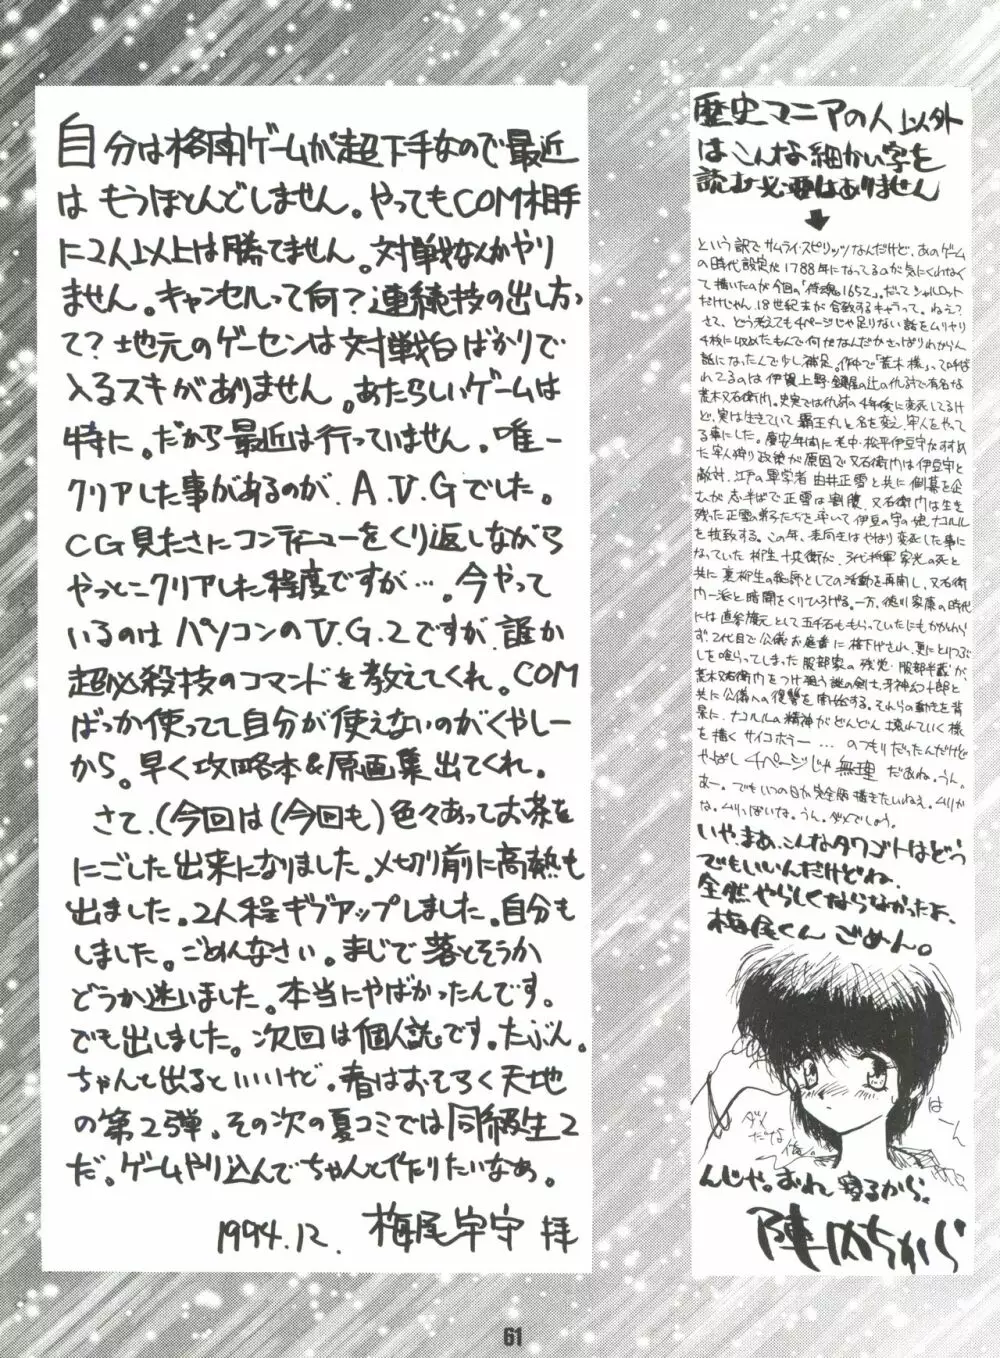 自分は格闘ゲームが超下手なので最近
はもうほとんどしません。やってもCOM相手
に2人以上は勝てません。対戦なんかやり
ません。キャンセルって何？連続技の出し方っ
て？地元のゲーセンは対戦台ばかりで
入るスキがありません。あたらしいゲームは
特に。だから最近は行っていません。唯一
クリアした事があるのが、A.V.Gでした。
CG見たさにコンティニューをくり返しながら
やっとこクリアした程度ですが…。今やって
いるのはパソコンのV.G.2ですが、誰か
超必殺技のコマンドを教えてくれ。COM
ばっか使ってて自分が使えないのがくやしー
から。早く攻略本&原画集出てくれ。
さて、(今回は(今回も)色々あってお茶を
にごした出来になりました。〆切り前に高熱も
出ました。2人程ギブアップしました。自分も
しました。ごめんなさい。まじで落とそうか
どうか迷いました。本当にやばかったんです。
でも出しました。次回は個人誌です。たぶん。
ちゃんと出るといいけど。春はおそらく天地
の第2弾。その次の夏コミでは同級生2
だ。ゲームやり込んでちゃんと作りたいなぁ。
1994.12. 梅尾宇守 拝
歴史マニアの人以外
はこんな細かい字を
読む必要はありません
という訳でサムライスピリッツなんだけど、あのゲーム
の時代設定が1788年になってるのが気にくわなく
て描いたのが今回の「侍魂1652」。だってシャルロット
だけじゃん、18世紀末が合致するキャラって。ねぇ？
さて、どう考えても4ページじゃ足りない話をムリヤリ
4枚に収めたもんで何がなんだかさっぱりわかりん
話になったんで少し補足。作中で「荒木様」って呼ば
れてるのは伊賀上野・鍵屋の辻の仇討で有名な
荒木又右衛門。史実では仇討の4年後に変死してるけ
ど、実は生きていて覇王丸と名を変え、牢人をやって
る事にした。慶安年間に老中・松平伊豆守がすすめ
た牢人狩り政策が原因で又右衛門は伊豆守と
敵対、江戸の軍学者由井正雪と共に倒幕を企
むが志半ばで正雪は割腹、又右衛門は生き
残った正雪の弟子たちを率いて伊豆の守の娘、ナコルル
を拉致する。この年、表向きはやはり変死した事に
なっていた柳生十兵衛が、3代将軍家光の死と
共に裏柳生の総帥としての活動を再開し、又右衛
門一派と暗闘をくりひろげる。一方、徳川家康の時代
には直参旗元として五千石ももらっていたにもかかわら
ず、2代目で公儀お庭番に格下げされ、更にとりつぶ
しを喰らってしまった服部家の残党・服部半蔵が、
荒木又右衛門をつけ狙う謎の剣士、牙神幻十郎と
共に公儀への復讐を開始する。それらの動きを背
景に、ナコルルの精神がどんどん壊れていく様
を描くサイコホラー…のつもりだったんだけど
やっぱし4ページじゃ無理だあね。うん。
あー。でもいつの日か完全版描きたいねぇ。ムリか
な。ムリっぽいな。うん。ダメでしょう。
いや、まあ、こんなタワゴトはどう
でもいいんだけどね、
全然やらしくならなかったよ、
梅尾くんごめん。
ダメ
だな
俺。
はーん
んじゃ。おれ寝るから。
61